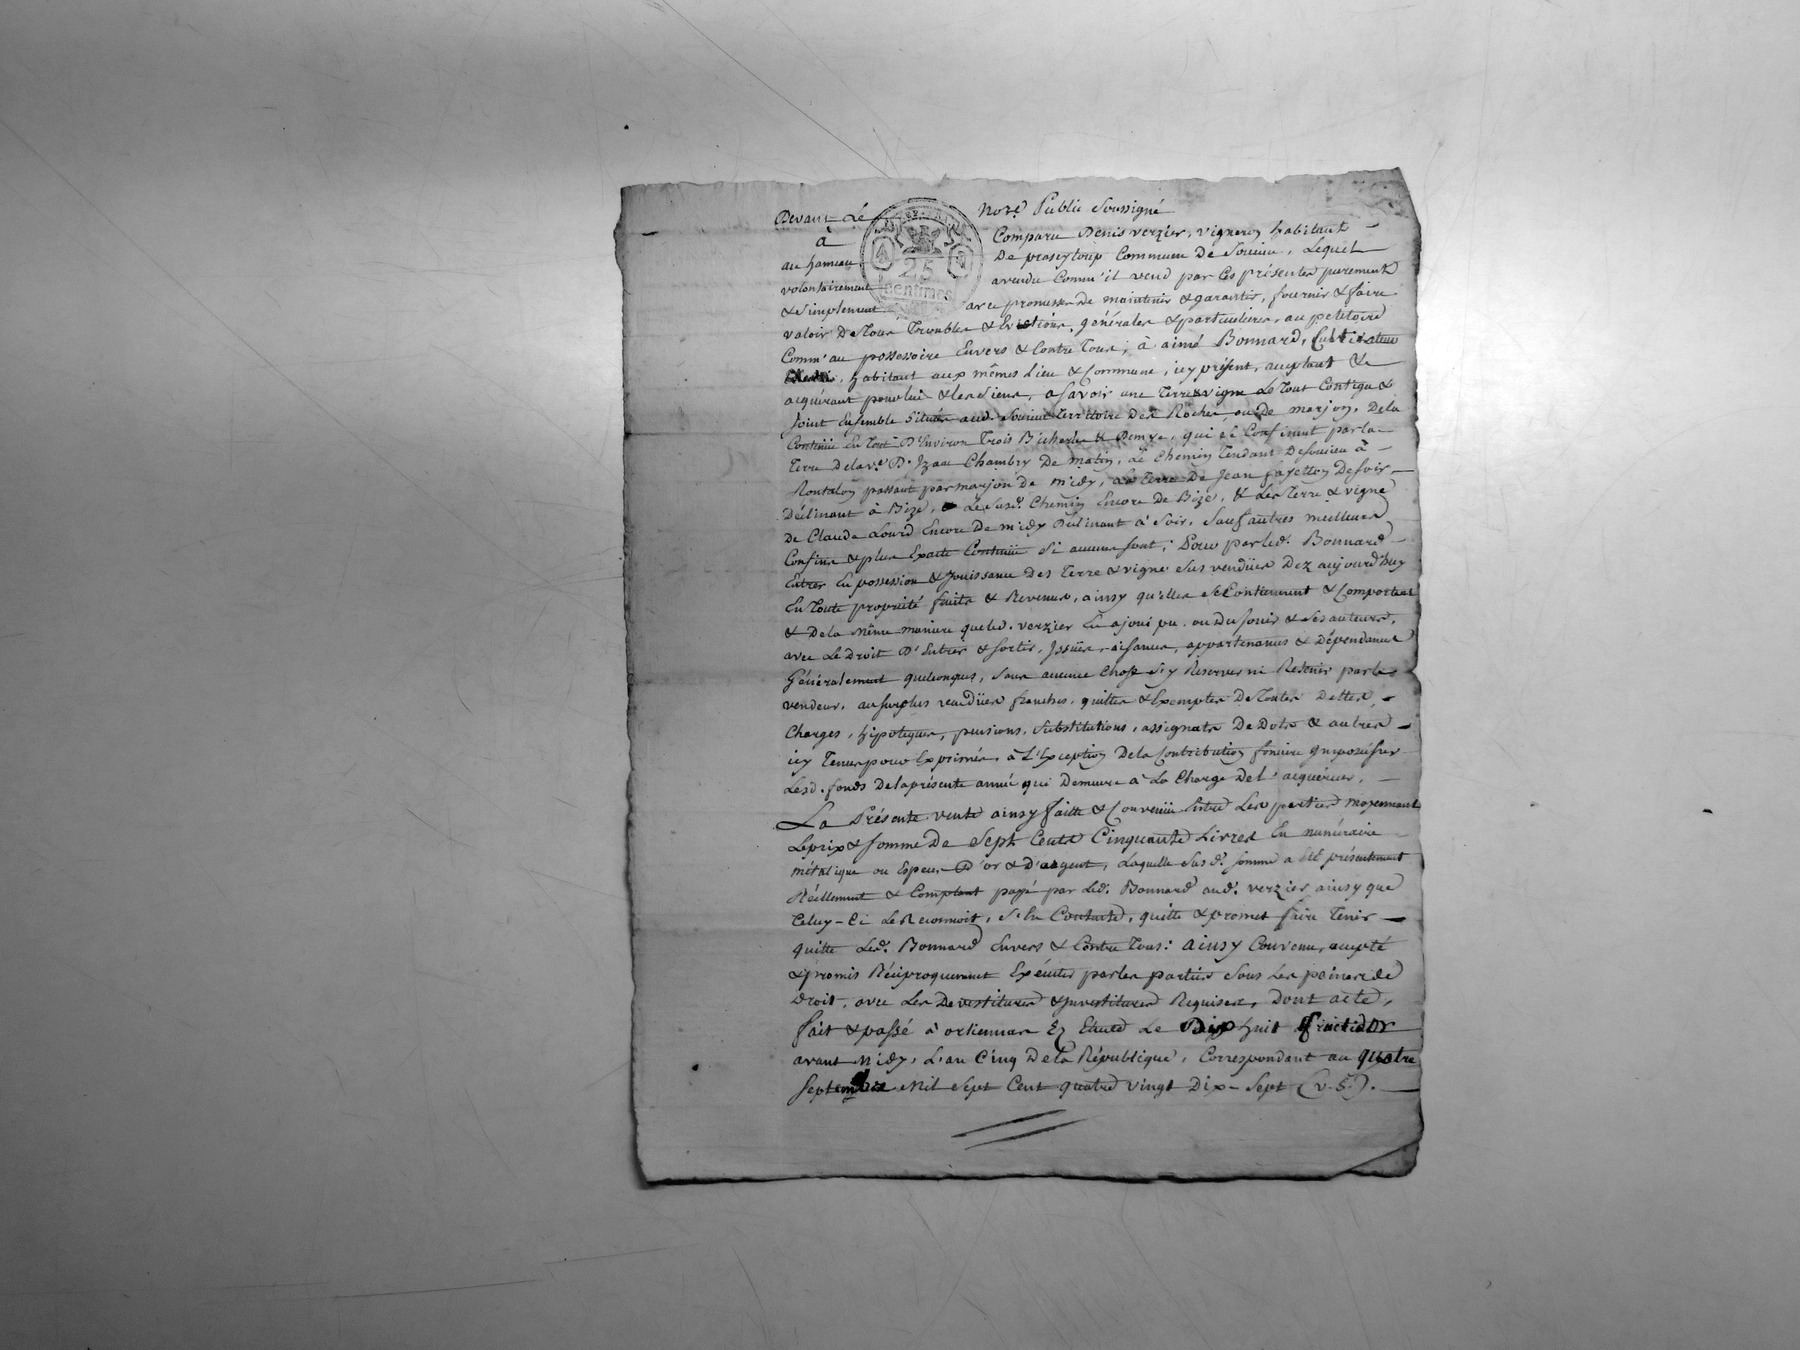 Devant Lé Not.re Public Soussigné
à Comparu Denis verzier, vigneron habitant
au hameau De prasyloup Commune De Soucieu, Lequel
volontairement avendu Comm'il vend par Ces présentes purement
& simplement avec promesse de maintenir & garantir, fournir & faire
valoir De Tous Troubles & Evictions, générales & particulieres, au petitoire
Comm'au possessoire Envers & Contre Tous; à aimé Bonnard, Cultivateur
habitant aux mêmes Lieu & Commune, icy présent, acceptant &
acquérant pour lui & les Siens, a Savoir une Terre & vigne Le Tout Contigu &
Joint Ensemble Situés aud. Soucieu Territoire des Roches ou De marjon, De la
Contenüe En Tout D'Environ Trois Bicherées & Demye, qui se Confinent par la
Terre Delave. D. Izaac Chambry De matin, Le Chemin Tendant De Soucieu à
Rontalon passant par marjon de midy, La Terre De Jean fayetton De soir
Déclinant à Bize, Le Susd. Chemin Encore De Bize, & Les Terre & vigne
De Claude Lourd Encore De midy Déclinant à Soir, Sauf autres meilleurs
Confins & plus Exacte Contenüe Si aucuns sont; Pour par led. Bonnard
Entrer En possession & Jouissance Des Terre & vigne Sus vendües Dez aujourd'huy
En Toute propriété fruits & Revenus, ainsy qu'elles se Contiennent & Comportent
& De la même maniere que led. verzier En a joui pu ou Du Jouir & Ses auteurs,
avec Le Droit D'Entrer & Sortir, Jssües, aisances, appartenances & Dépendances
Généralement quelconques, Sans aucune Chose S'y Reserver ni Retenir par le
vendeur, au surplus vendües franches, quittes & Exemptes De Toutes Dettes,
Charges, hipoteques, pensions, Substitutions, assignats De Dots & autres
icy Tenus pour Exprimés, à L'Exception De la Contribution fonciere Imposée sur
Lesd. fonds De la présente année qui Demeure à La Charge De l'acquéreur.
La Présente vente ainsy faitte & Convenüe Entre Les parties moyennant
Le prix & somme De Sept Cents Cinquante Livres En numéraire
métalique ou Especes D'or & D'argent, Laquelle Susd. somme a été présentement
Réellement & Comptant payé par Led. Bonnard aud. verzier ainsy que
Celuy-Ci Le Reconnoit, S'En Contente, quitte & promet faire Tenir
quitte Led. Bonnard Envers & Contre Tous: ainsy Convenu, accepté
& promis Réciproquement Exécuter par les parties Sous Les peines de
Droit, avec Les Devestitures & Jnvestitures Requises, Dont acte,
fait & passé à orlienas En Etude Le Dix huit fructidor
avant Midy, L'an Cinq De la République, Correspondant au quatre
Septembre Mil Sept Cent quatre vingt Dix-Sept (v. S.).
25
Centimes